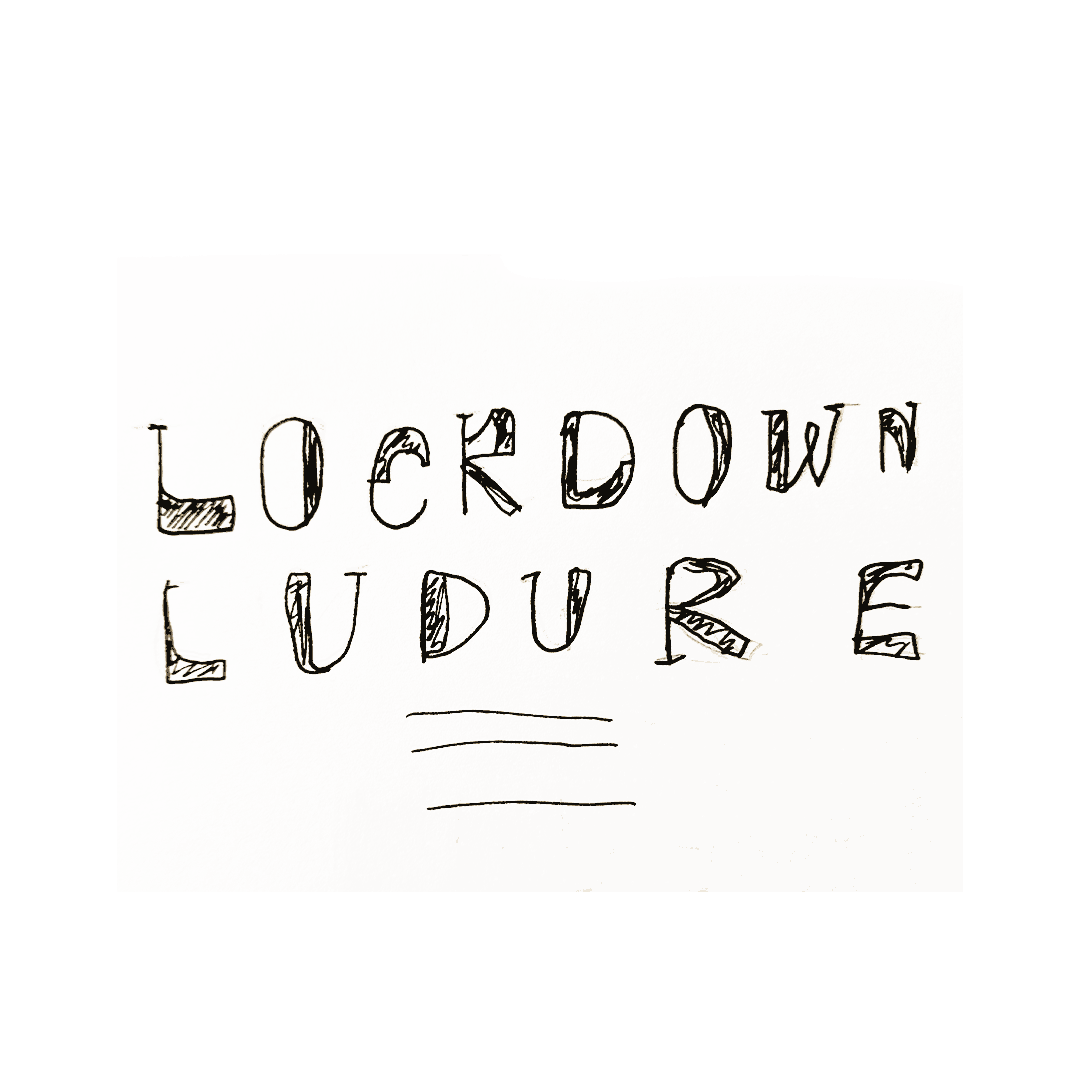 LOCKDOWN
LUDURE